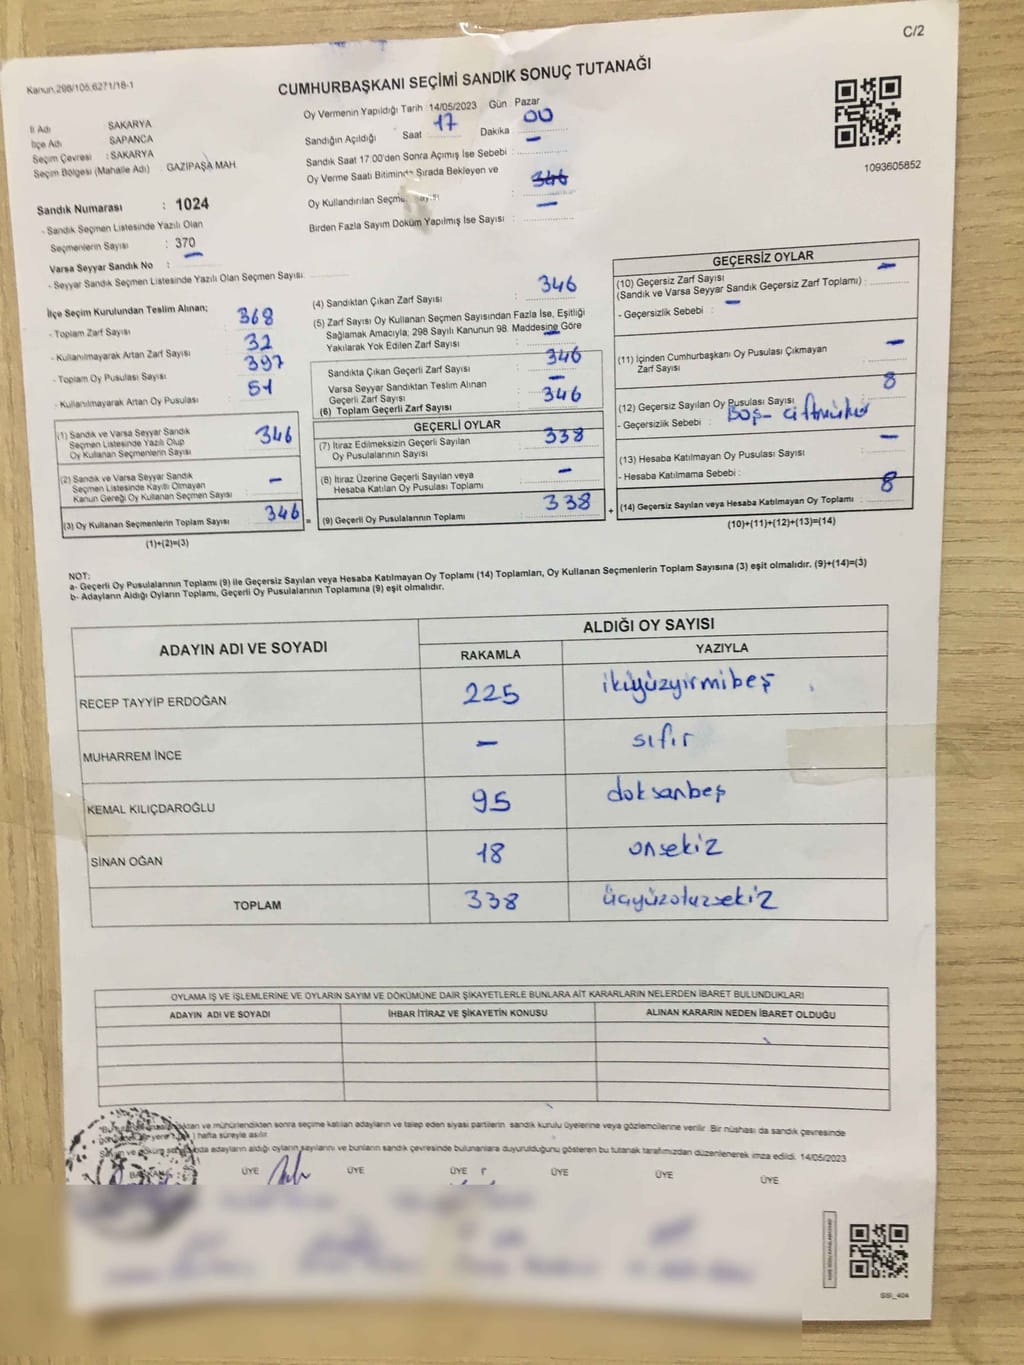 C/2
Kanun.298/105,6271/18-1
CUMHURBAŞKANI SEÇİMİ SANDIK SONUÇ TUTANAĞI
İl Adı SAKARYA
İlçe Adı SAPANCA
Seçim Çevresi : SAKARYA
Seçim Bölgesi (Mahalle Adı) : GAZİPAŞA MAH.
Oy Vermenin Yapıldığı Tarih 14/05/2023 Gün Pazar
Sandığın Açıldığı Saat 17 Dakika 00
Sandık Saat 17:00'den Sonra Açımış İse Sebebi : —
Oy Verme Saati Bitiminde Sırada Bekleyen ve
Oy Kullandırılan Seçmen Sayısı : 346 —
Birden Fazla Sayım Döküm Yapılmış İse Sayısı :
1093605852
Sandık Numarası : 1024
- Sandık Seçmen Listesinde Yazılı Olan
Seçmenlerin Sayısı : 370
Varsa Seyyar Sandık No : —
- Seyyar Sandık Seçmen Listesinde Yazılı Olan Seçmen Sayısı:
İlçe Seçim Kurulundan Teslim Alınan;
- Toplam Zarf Sayısı : 368
- Kullanılmayarak Artan Zarf Sayısı : 32
- Toplam Oy Pusulası Sayısı : 397
- Kullanılmayarak Artan Oy Pusulası : 51
(1) Sandık ve Varsa Seyyar Sandık
Seçmen Listesinde Yazılı Olup
Oy Kullanan Seçmenlerin Sayısı : 346
(2) Sandık ve Varsa Seyyar Sandık
Seçmen Listesinde Kaydı Olmayan
Kanun Gereği Oy Kullanan Seçmen Sayısı : —
(3) Oy Kullanan Seçmenlerin Toplam Sayısı : 346 =
(1)+(2)=(3)
(4) Sandıktan Çıkan Zarf Sayısı : 346
(5) Zarf Sayısı Oy Kullanan Seçmen Sayısından Fazla İse, Eşitliği
Sağlamak Amacıyla; 298 Sayılı Kanunun 98. Maddesine Göre
Yakılarak Yok Edilen Zarf Sayısı : —
Sandıkta Çıkan Geçerli Zarf Sayısı : 346
Varsa Seyyar Sandıktan Teslim Alınan
Geçerli Zarf Sayısı : —
(6) Toplam Geçerli Zarf Sayısı : 346
GEÇERLİ OYLAR
(7) İtiraz Edilmeksizin Geçerli Sayılan
Oy Pusulalarının Sayısı : 338
(8) İtiraz Üzerine Geçerli Sayılan veya
Hesaba Katılan Oy Pusulası Toplamı : —
(9) Geçerli Oy Pusulalarının Toplamı : 338 +
GEÇERSİZ OYLAR
(10) Geçersiz Zarf Sayısı
(Sandık ve Varsa Seyyar Sandık Geçersiz Zarf Toplamı) : —
- Geçersizlik Sebebi : —
(11) İçinden Cumhurbaşkanı Oy Pusulası Çıkmayan
Zarf Sayısı : —
(12) Geçersiz Sayılan Oy Pusulası Sayısı : 8
- Geçersizlik Sebebi : Boş - çiftmühür
(13) Hesaba Katılmayan Oy Pusulası Sayısı : —
- Hesaba Katılmama Sebebi :
(14) Geçersiz Sayılan veya Hesaba Katılmayan Oy Toplamı : 8
(10)+(11)+(12)+(13)=(14)
NOT:
a- Geçerli Oy Pusulalarının Toplamı (9) ile Geçersiz Sayılan veya Hesaba Katılmayan Oy Toplamı (14) Toplamları, Oy Kullanan Seçmenlerin Toplam Sayısına (3) eşit olmalıdır. (9)+(14)=(3)
b- Adayların Aldığı Oyların Toplamı, Geçerli Oy Pusulalarının Toplamına (9) eşit olmalıdır.
ADAYIN ADI VE SOYADI ALDIĞI OY SAYISI
RAKAMLA YAZIYLA
RECEP TAYYİP ERDOĞAN 225 ikiyüzyirmibeş
MUHARREM İNCE — sıfır
KEMAL KILIÇDAROĞLU 95 doksanbeş
SİNAN OĞAN 18 onsekiz
TOPLAM 338 üçyüzotuzsekiz
OYLAMA İŞ VE İŞLEMLERİNE VE OYLARIN SAYIM VE DÖKÜMÜNE DAİR ŞİKAYETLERLE BUNLARA AİT KARARLARIN NELERDEN İBARET BULUNDUKLARI
ADAYIN ADI VE SOYADI İHBAR İTİRAZ VE ŞİKAYETİN KONUSU ALINAN KARARIN NEDEN İBARET OLDUĞU
ve mühürlendikten sonra seçime katılan adayların ve talep eden siyasi partilerin sandık kurulu üyelerine veya gözlemcilerine verilir. Bir nüshası da sandık çevresinde
hafta süreyle asılır.
adayların aldığı oyların sayılarını ve bunların sandık çevresinde bulunanlara duyurulduğunu gösteren bu tutanak tarafımızdan düzenlenerek imza edildi. 14/05/2023
BAŞKAN ÜYE ÜYE ÜYE ÜYE ÜYE ÜYE
SSİ_404